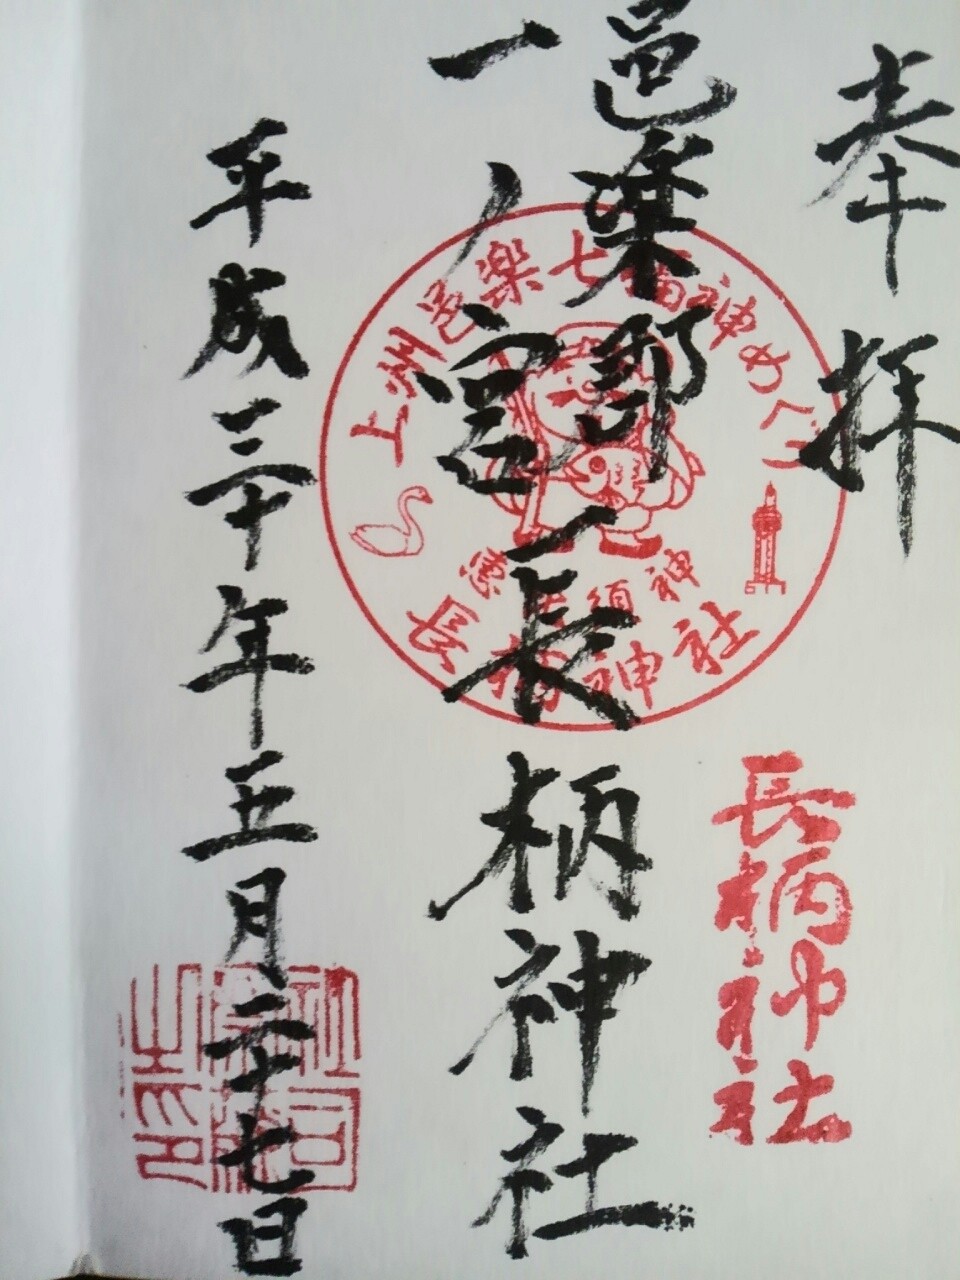 奉拝
邑楽郡
一ノ宮
長柄神社
平成三十年五月二十七日
上州邑楽七福神めぐり
恵比須神
長柄神社
長柄神社